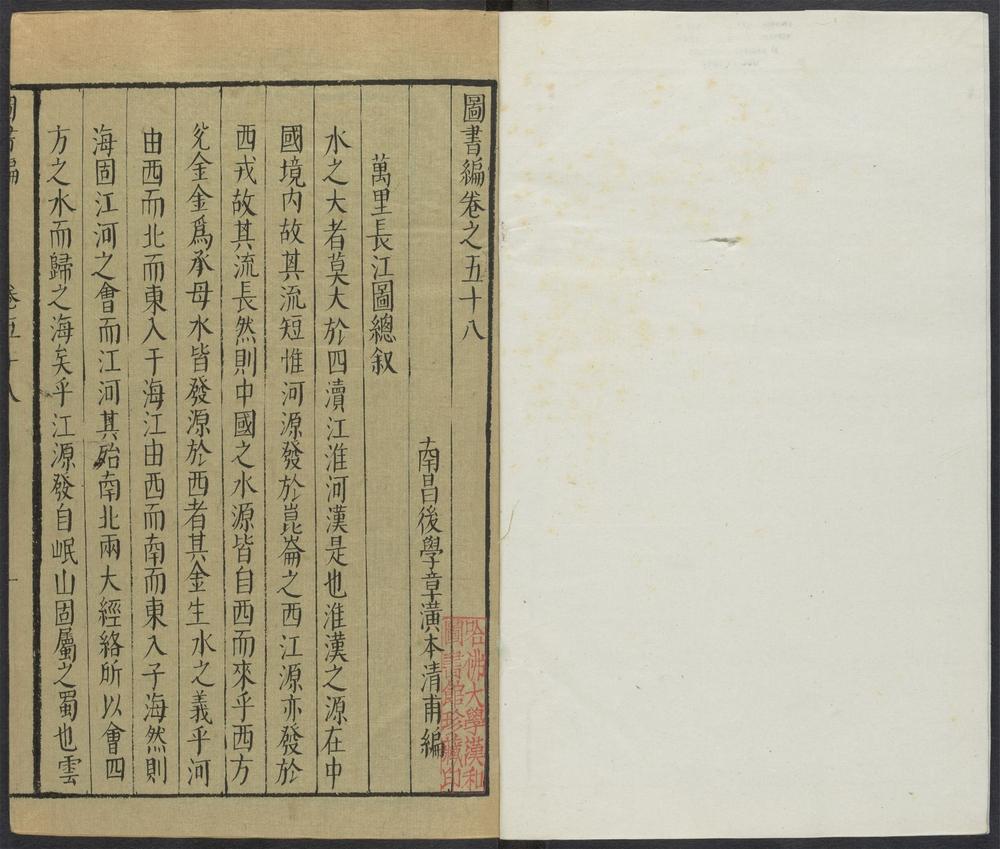 圖書編卷之五十八
南昌後學章潢本清甫編
萬里長江圖總叙
水之大者莫大於四瀆江淮河漢是也淮漢之源在中
國境内故其流短惟河源發於崑崙之西江源亦發於
西戎故其流長然則中國之水源皆自西而來乎西方
兊金金爲水母水皆發源於西者其金生水之義乎河
由西而北而東入于海江由西而南而東入于海然則
海固江河之會而江河其殆南北兩大經絡所以會四
方之水而歸之海矣乎江源發自岷山固屬之蜀也雲
圖書編
卷五十八
一
哈佛大學漢和
圖書館珍藏印